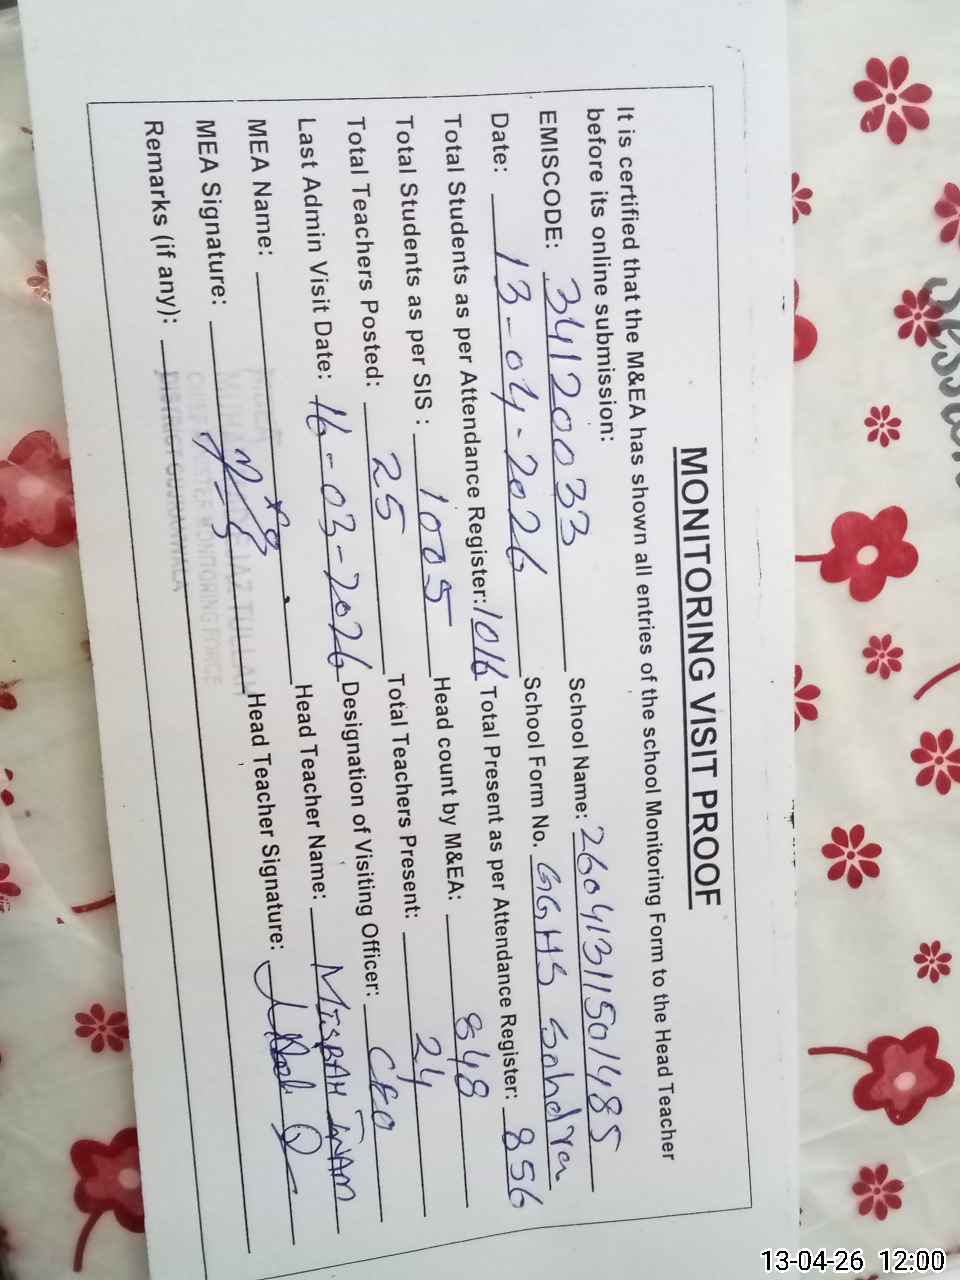 MONITORING VISIT PROOF
It is certified that the M&EA has shown all entries of the school Monitoring Form to the Head Teacher
before its online submission:
EMISCODE: 34120033 School Name: 26041311501485
Date: 13-04-2026 School Form No. GGHS Sohdra
Total Students as per Attendance Register: 1016 Total Present as per Attendance Register: 856
Total Students as per SIS : 1005 Head count by M&EA: 848
Total Teachers Posted: 25 Total Teachers Present: 24
Last Admin Visit Date: 16-03-2026 Designation of Visiting Officer: CEO
MEA Name: Head Teacher Name: MISBAH INAM
MEA Signature: Head Teacher Signature:
Remarks (if any):
MONITORING FORCE
DISTRICT GUJRANWALA
13-04-26 12:00